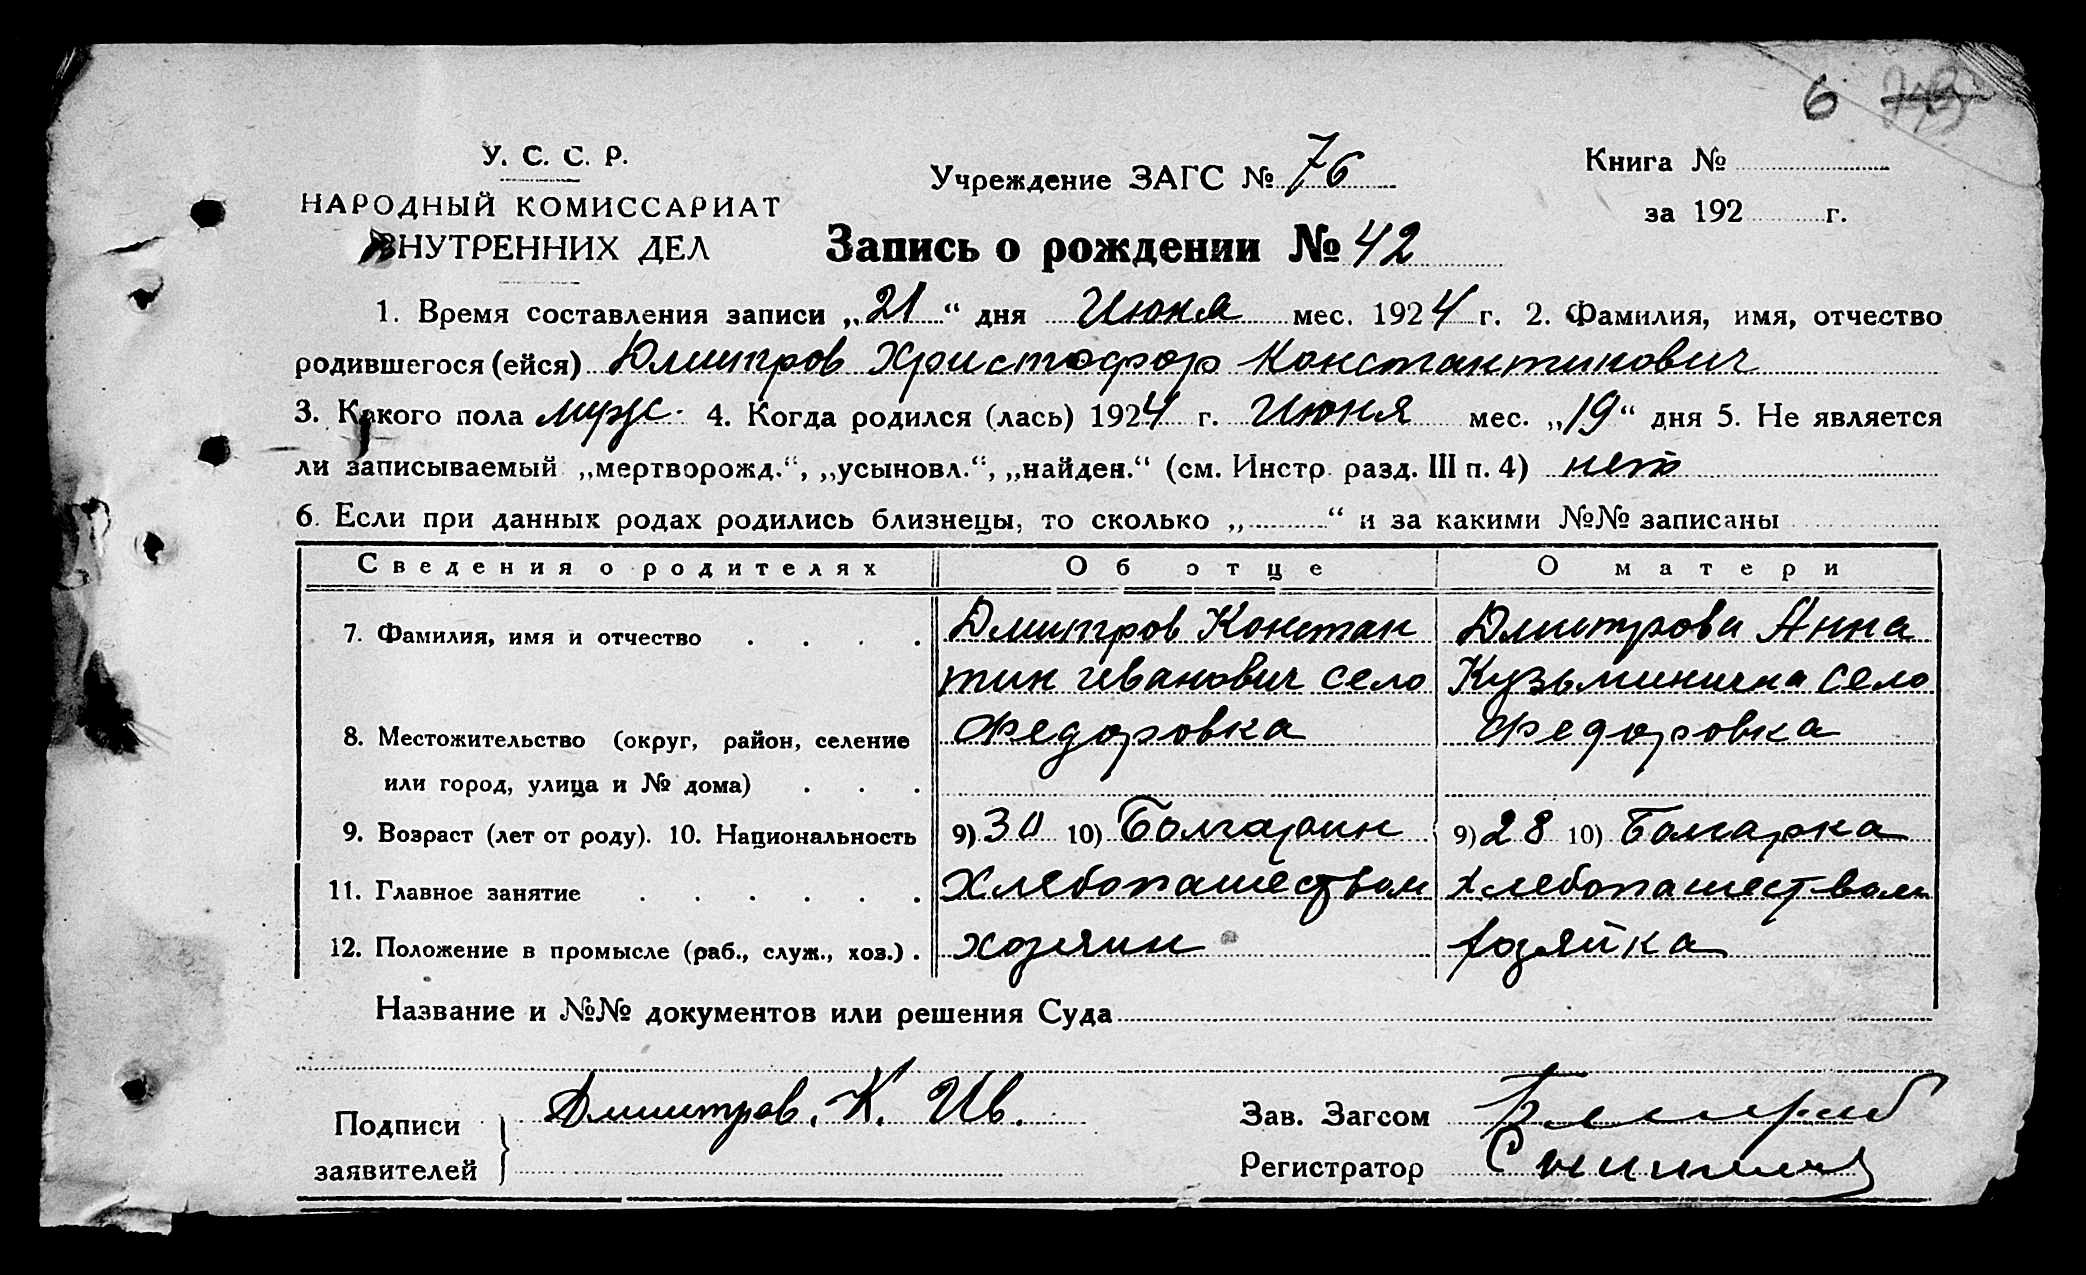 6
У. С. С. Р.
НАРОДНЫЙ КОМИССАРИАТ
ВНУТРЕННИХ ДЕЛ
Учреждение ЗАГС № 76
Книга №
за 192 г.
Запись о рождении № 42
1. Время составления записи „21“ дня Июня мес. 1924 г. 2. Фамилия, имя, отчество
родившегося (ейся) Дмитров Христофор Константинович
3. Какого пола муж. 4. Когда родился (лась) 1924 г. Июня мес. „19“ дня 5. Не является
ли записываемый „мертворожд.“, „усыновл.“, „найден.“ (см. Инстр. разд. III п. 4) нет
6. Если при данных родах родились близнецы, то сколько „ “ и за какими №№ записаны
Сведения о родителях Об отце О матери
7. Фамилия, имя и отчество . . . . Дмитров Констан Дмитрова Анна
тин Иванович село Кузьминична село
8. Местожительство (округ, район, селение Федоровка Федоровка
или город, улица и № дома) . . .
9. Возраст (лет от роду). 10. Национальность 9) 30 10) Болгарин 9) 28 10) Болгарка
11. Главное занятие . . . . . . Хлебопашеством Хлебопашеством
12. Положение в промысле (раб., служ., хоз.) . хозяин хозяйка
Название и №№ документов или решения Суда
Подписи
заявителей
Дмитров. К. Ив.
Зав. Загсом
Регистратор